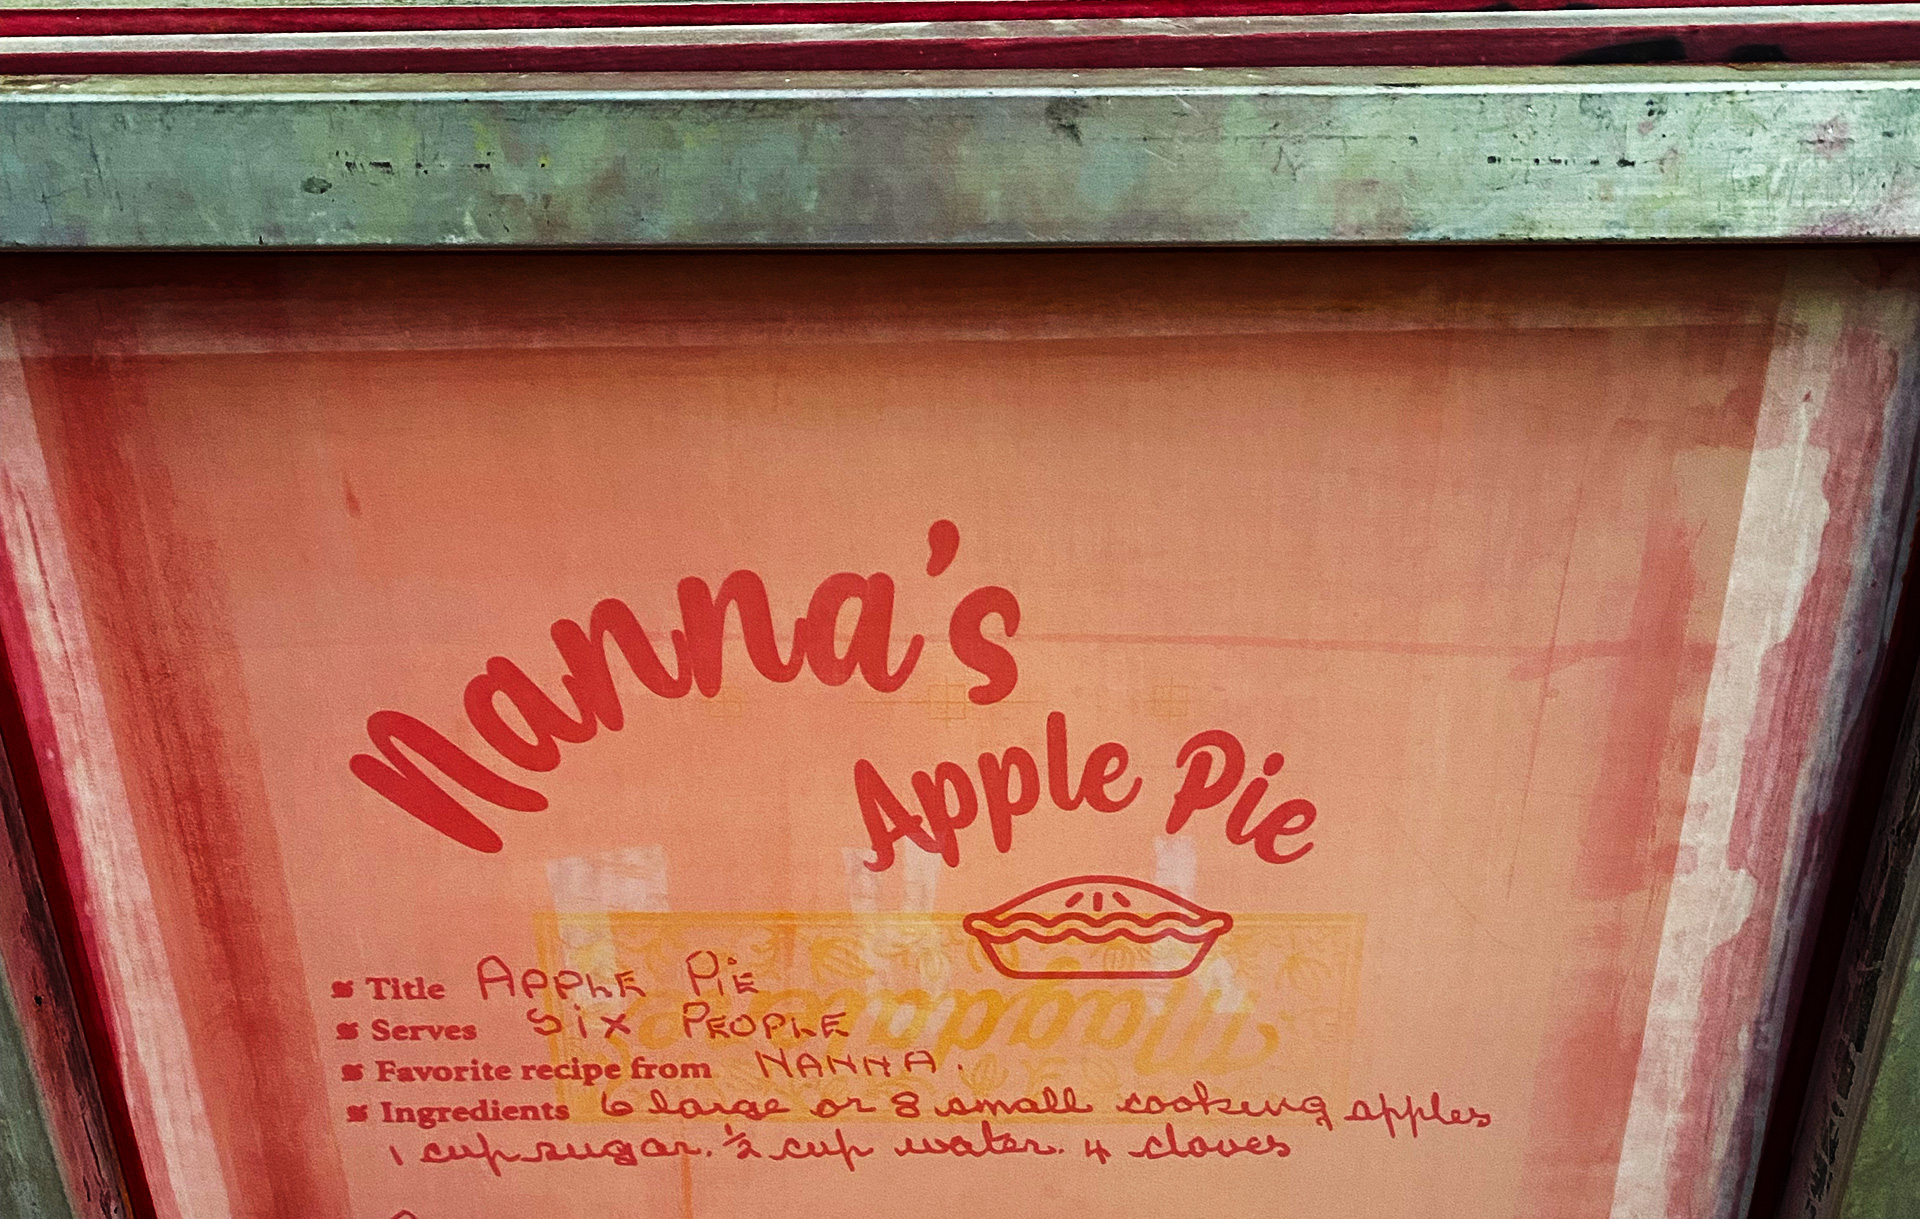 Nanna's
Apple Pie
Title APPLE PIE
Serves SIX PEOPLE
Favorite recipe from NANNA.
Ingredients 6 large or 8 small cooking apples
1 cup sugar. ½ cup water. 4 cloves